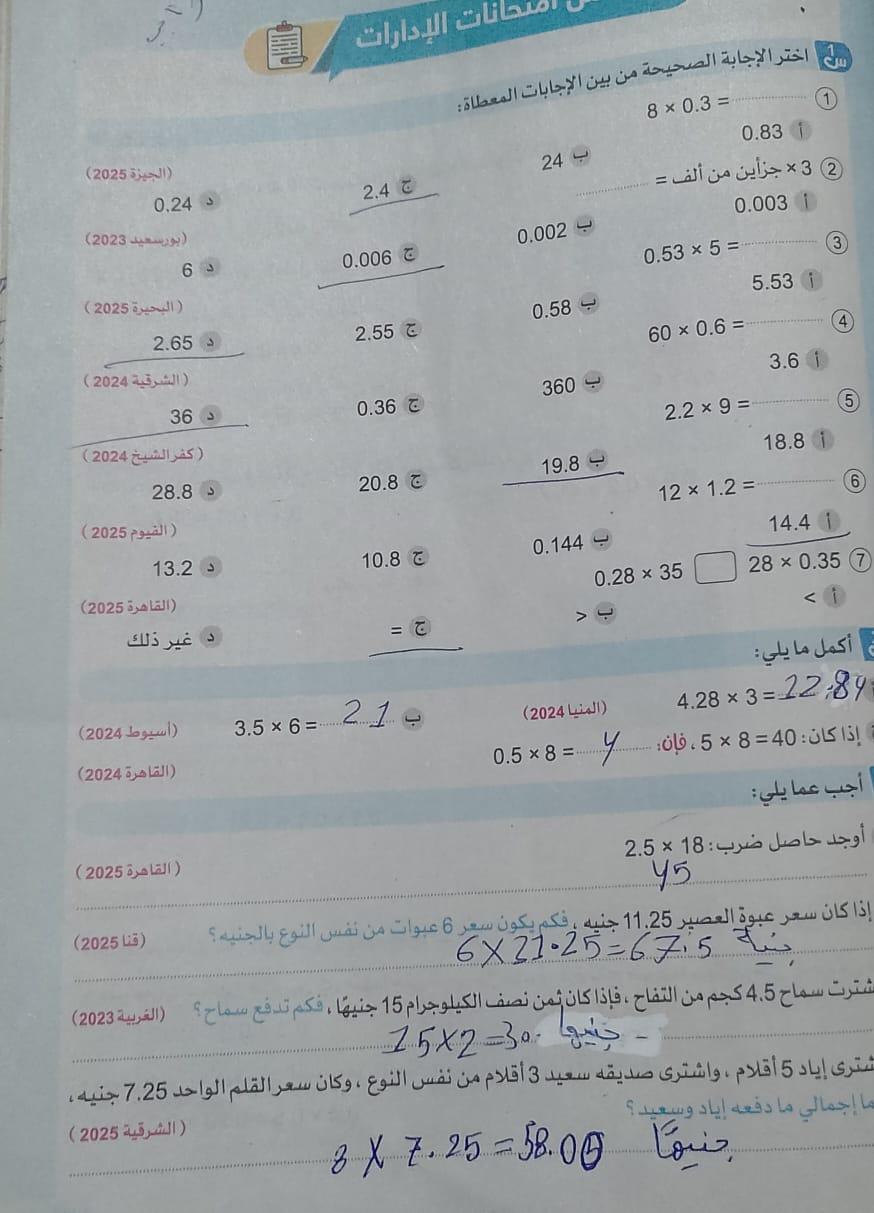 امتحانات الإدارات
س1 اختر الإجابة الصحيحة من بين الإجابات المعطاة:
1 8 × 0.3 = ........
أ 0.83 ب 24 ج 2.4 د 0.24 (الجيزة 2025)
2 3 × جزأين من ألف = ........
أ 0.003 ب 0.002 ج 0.006 د 6 (بورسعيد 2023)
3 0.53 × 5 = ........
أ 5.53 ب 0.58 ج 2.55 د 2.65 (البحيرة 2025)
4 60 × 0.6 = ........
أ 3.6 ب 360 ج 0.36 د 36 (الشرقية 2024)
5 2.2 × 9 = ........
أ 18.8 ب 19.8 ج 20.8 د 28.8 (كفر الشيخ 2024)
6 12 × 1.2 = ........
أ 14.4 ب 0.144 ج 10.8 د 13.2 (الفيوم 2025)
7 28 × 0.35 □ 0.28 × 35
أ < ب > ج = د غير ذلك (القاهرة 2025)
أكمل ما يلي:
4.28 × 3 = 12.84 (المنيا 2024) ب 3.5 × 6 = 21 (أسيوط 2024)
إذا كان: 40 = 8 × 5 ، فإن: 0.5 × 8 = 4 (القاهرة 2024)
أجب عما يلي:
أوجد حاصل ضرب: 18 × 2.5 (القاهرة 2025)
45
إذا كان سعر عبوة العصير 11.25 جنيه، فكم يكون سعر 6 عبوات من نفس النوع بالجنيه؟ (قنا 2025)
6 × 11.25 = 67.5 جنية
شترت سماح 4.5 كجم من التفاح، فإذا كان ثمن نصف الكيلوجرام 15 جنيهًا، فكم تدفع سماح؟ (الغربية 2023)
15 × 2 = 30 جنيها
شترى إياد 5 أقلام، واشترى صديقه سعيد 3 أقلام من نفس النوع، وكان سعر القلم الواحد 7.25 جنيه،
ما إجمالي ما دفعه إياد وسعيد؟ (الشرقية 2025)
8 × 7.25 = 58.00 جنيهًا